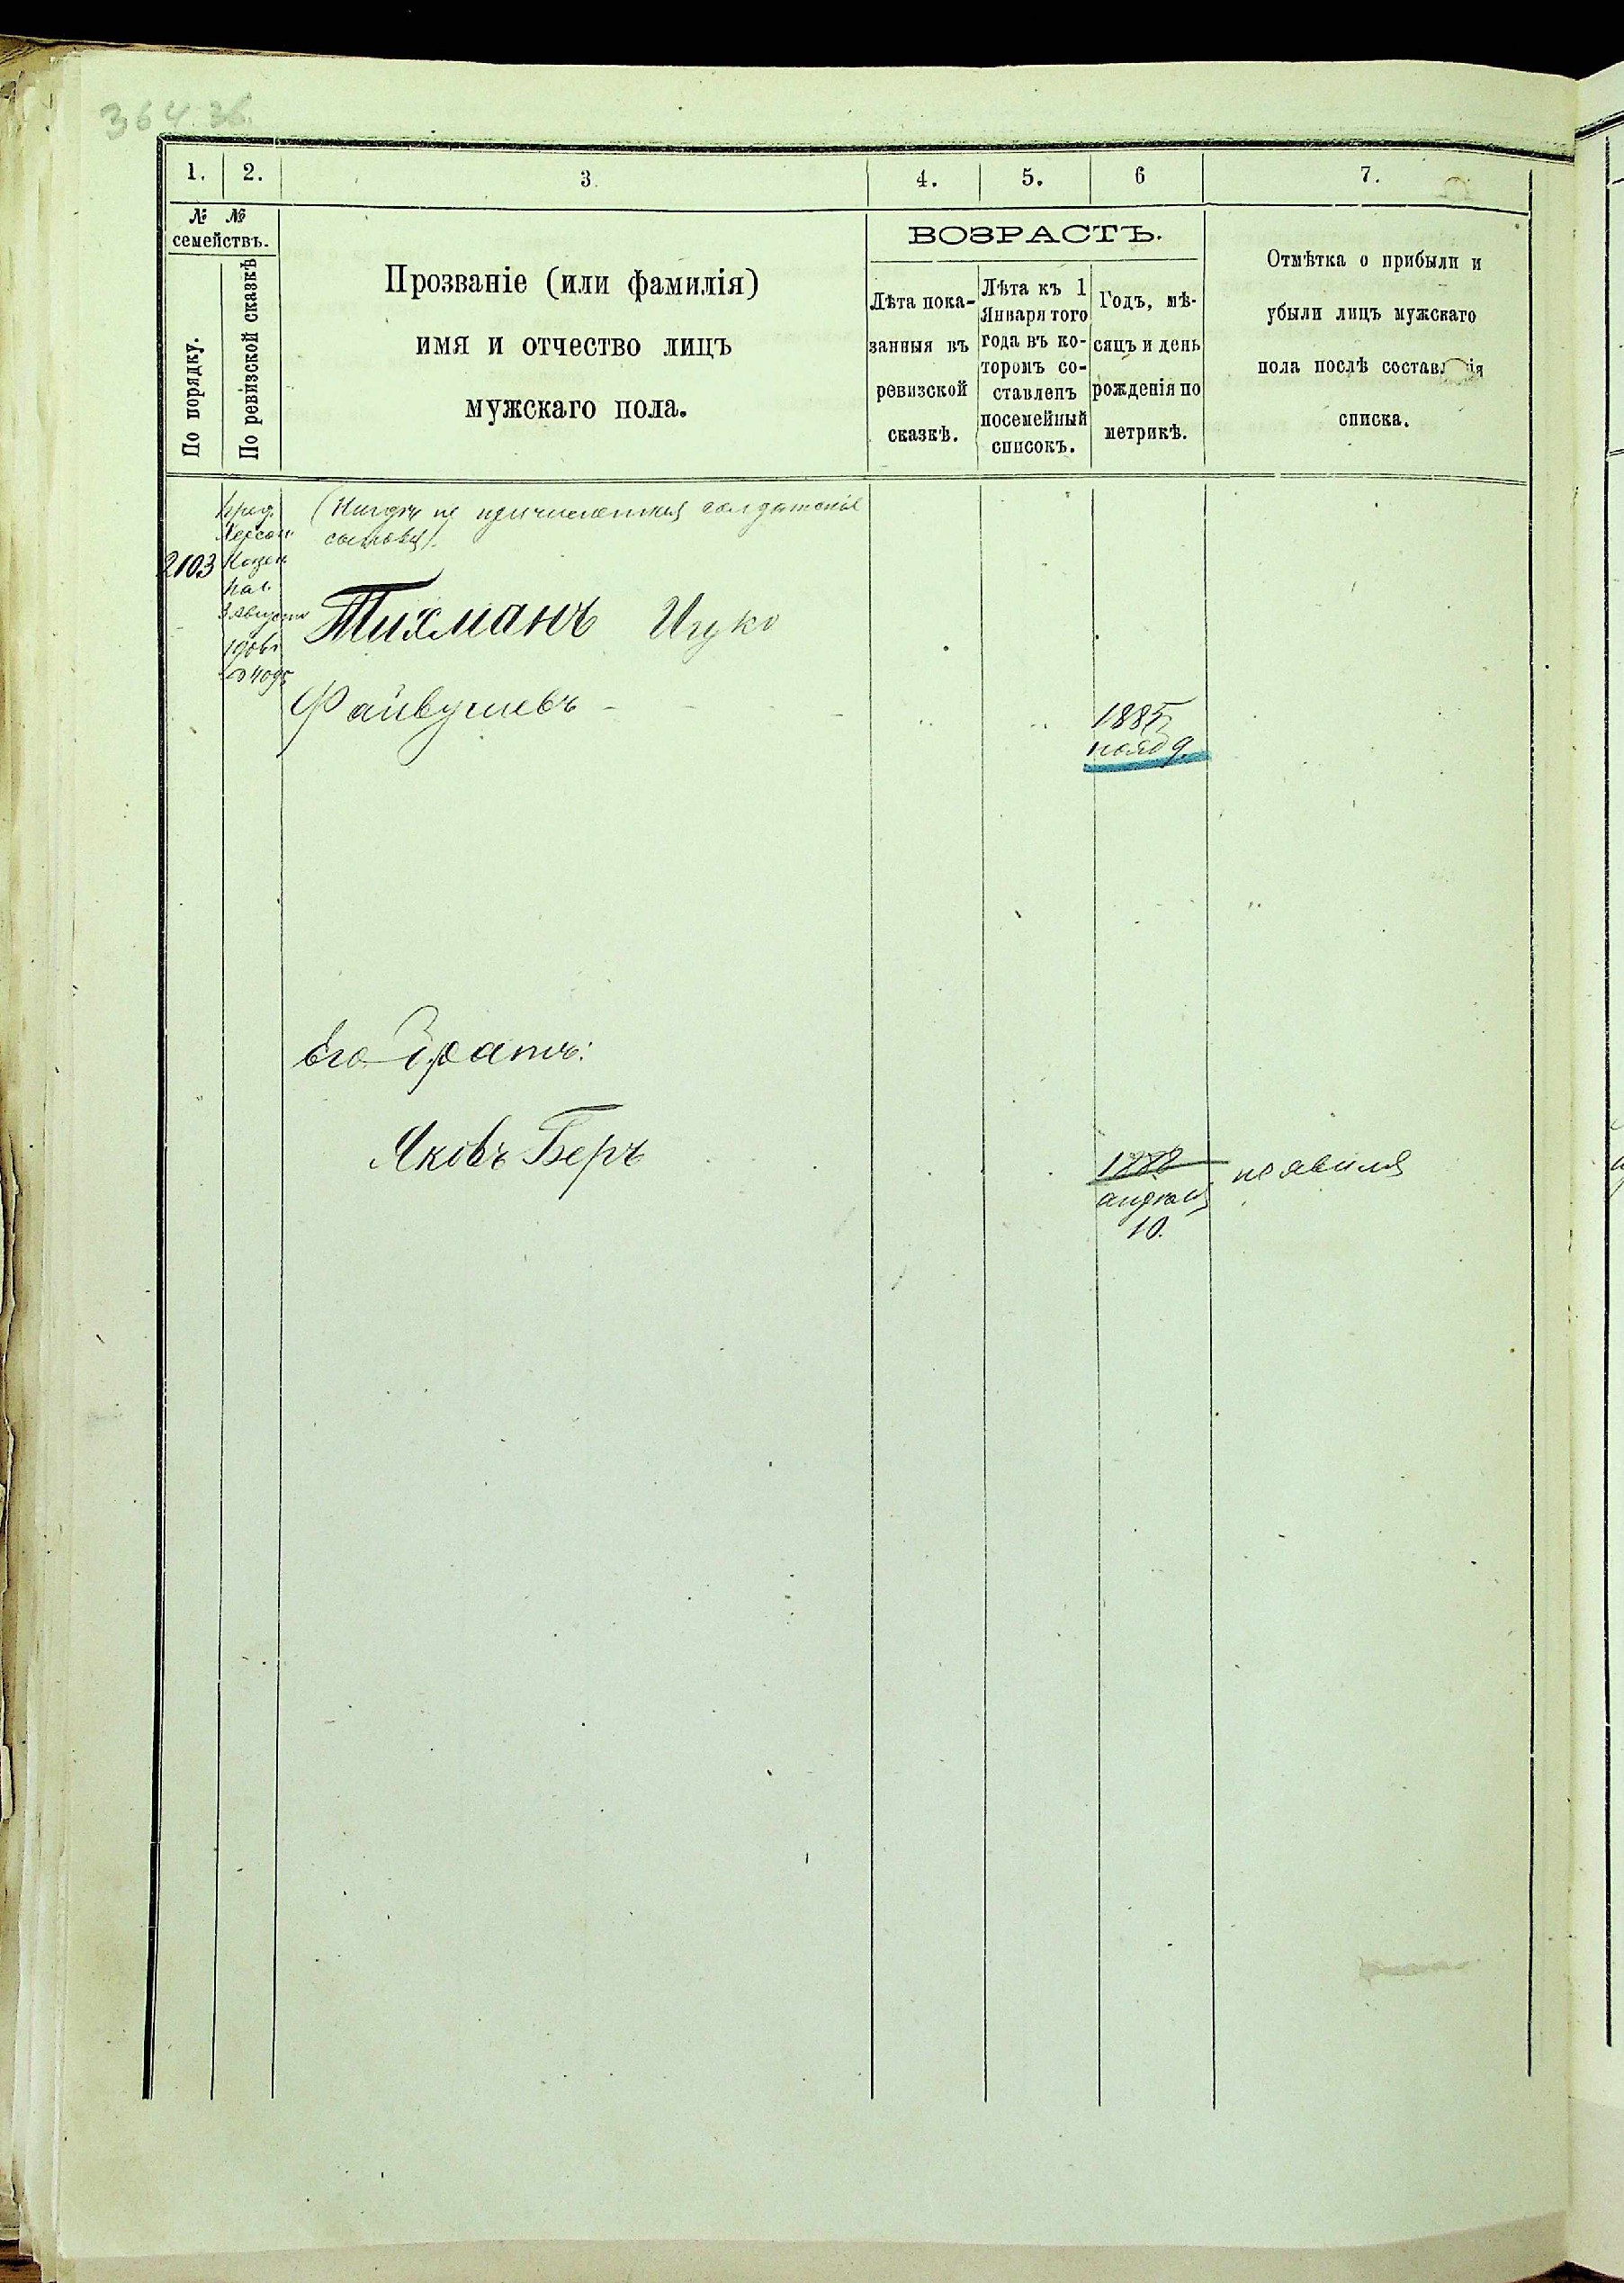 364. 36.
1. 2. 3 4. 5. 6 7.
№ №
семействъ.
По порядку.
По ревизской сказкѣ
Прозваніе (или фамилія)
имя и отчество лицъ
мужскаго пола.
ВОЗРАСТЪ.
Лѣта пока-
занныя въ
ревизской
сказкѣ.
Лѣта къ 1
Января того
года въ ко-
торомъ со-
ставленъ
посемейный
списокъ.
Годъ, мѣ-
сяцъ и день
рожденія по
метрикѣ.
Отмѣтка о прибыли и
убыли лицъ мужскаго
пола послѣ составленія
списка.
2103
Пред.
Херсон.
Казен.
Пал.
3 Августа
1906 г.
(Нигдѣ не причисленныя солдатскіе
сыновья).
Тихманъ Ицко
Файвушевъ
1885
нояб 9.
Его братъ:
Яковъ Беръ
1888
апрѣля
10.
не явился